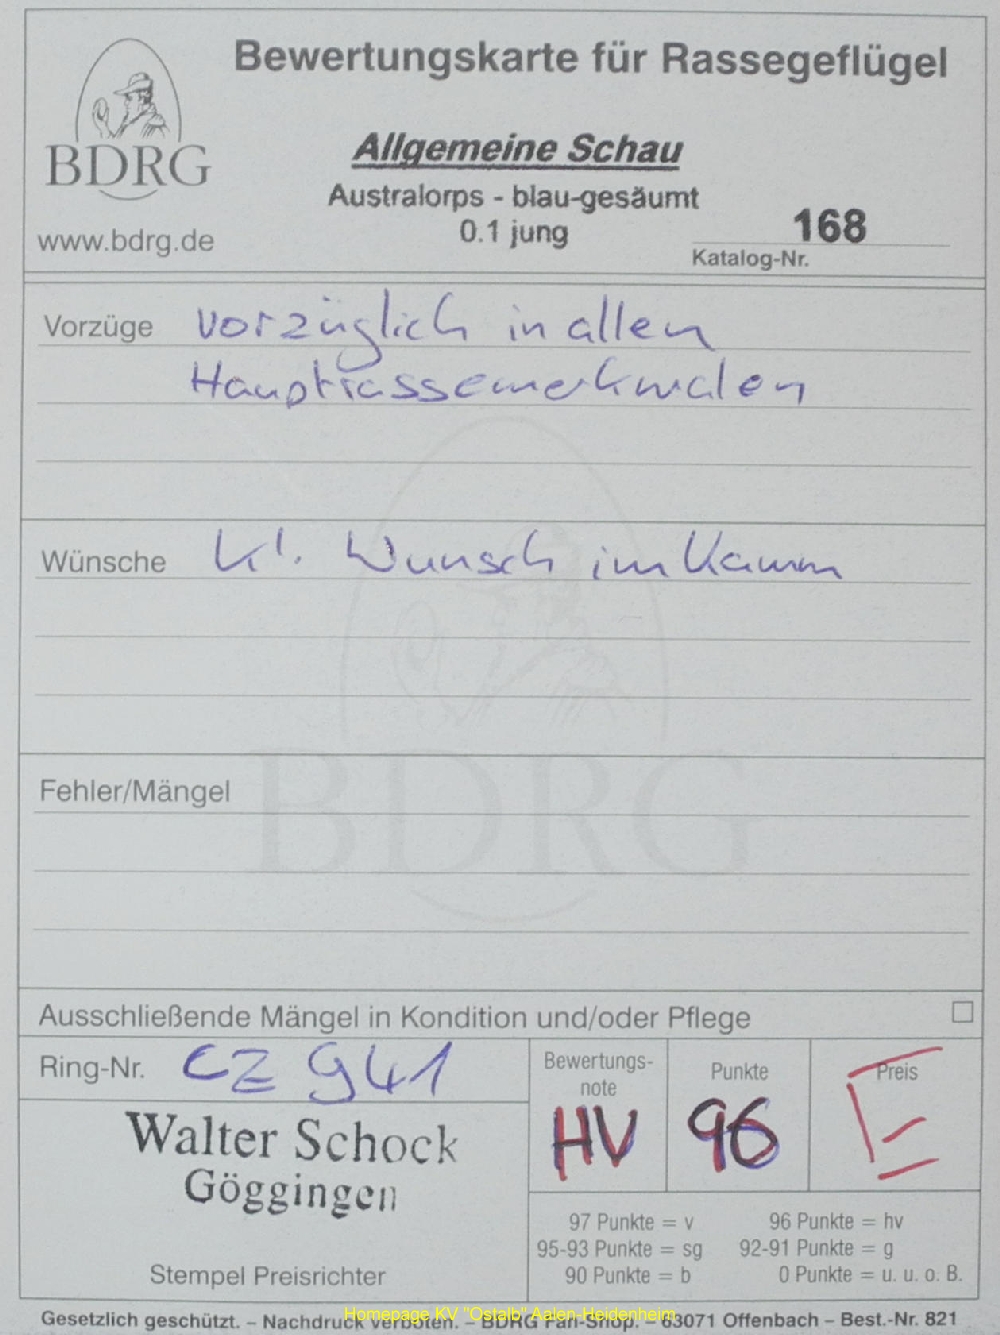 Bewertungskarte für Rassegeflügel
BDRG
www.bdrg.de
Allgemeine Schau
Australorps - blau-gesäumt
0.1 jung
168
Katalog-Nr.
Vorzüge vorzüglich in allen
Hauptrassemerkmalen
Wünsche kl. Wunsch im Kamm
BDRG
Fehler/Mängel
Ausschließende Mängel in Kondition und/oder Pflege
Ring-Nr. CZ 941
Bewertungs-
note
HV
Punkte
96
Preis
E
Walter Schock
Göggingen
Stempel Preisrichter
97 Punkte = v 96 Punkte = hv
95-93 Punkte = sg 92-91 Punkte = g
90 Punkte = b 0 Punkte = u. u. o. B.
Gesetzlich geschützt. – Nachdruck verboten. – BDRG Fan-Shop. – 63071 Offenbach – Best.-Nr. 821
Homepage KV "Ostalb" Aalen-Heidenheim